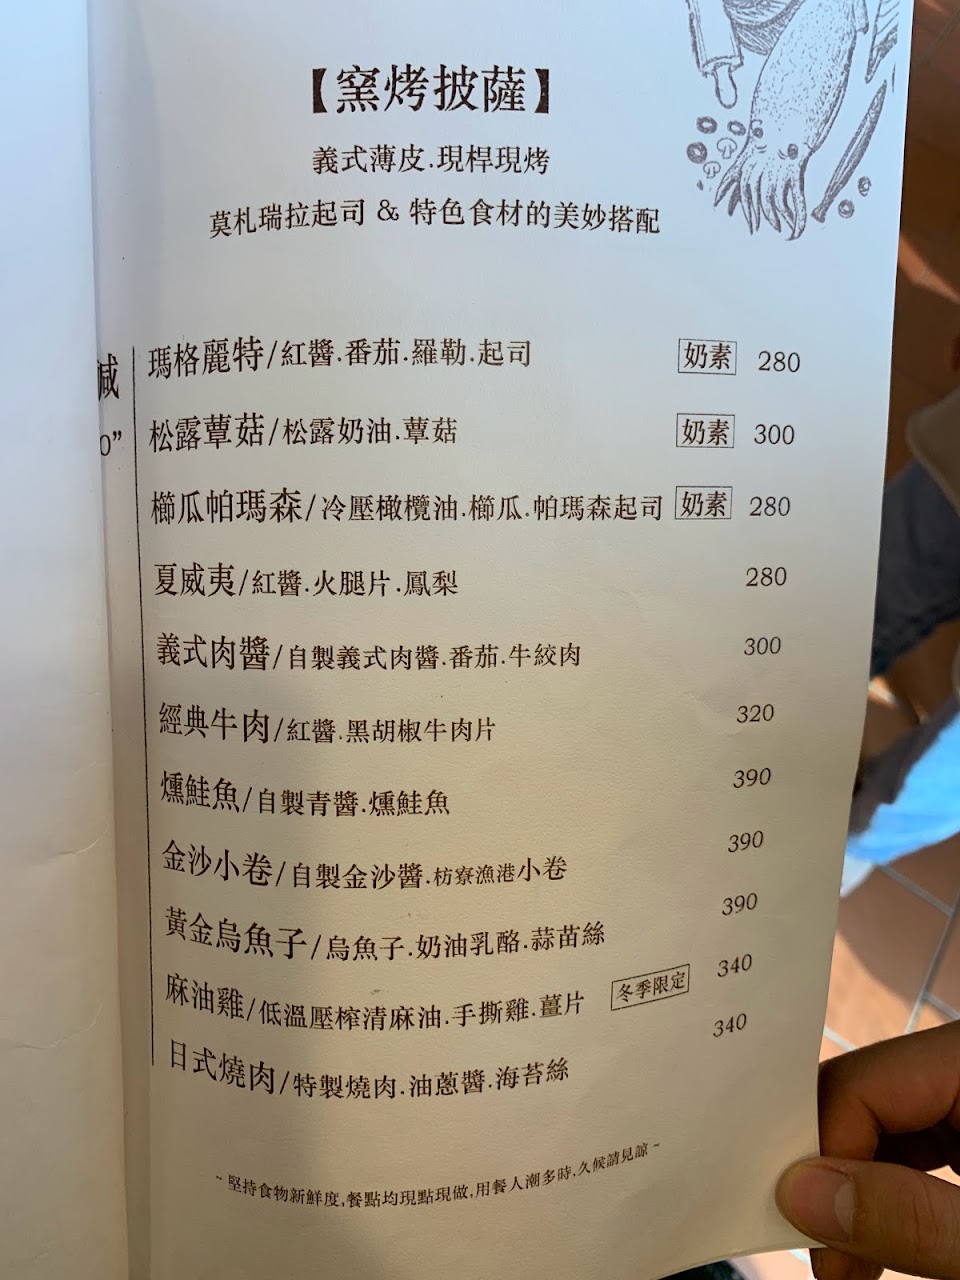 【窯烤披薩】
義式薄皮.現桿現烤
莫札瑞拉起司 & 特色食材的美妙搭配
減
0”
瑪格麗特/紅醬.番茄.羅勒.起司 奶素 280
松露蕈菇/松露奶油.蕈菇 奶素 300
櫛瓜帕瑪森/冷壓橄欖油.櫛瓜.帕瑪森起司 奶素 280
夏威夷/紅醬.火腿片.鳳梨 280
義式肉醬/自製義式肉醬.番茄.牛絞肉 300
經典牛肉/紅醬.黑胡椒牛肉片 320
燻鮭魚/自製青醬.燻鮭魚 390
金沙小卷/自製金沙醬.枋寮漁港小卷 390
黃金烏魚子/烏魚子.奶油乳酪.蒜苗絲 390
麻油雞/低溫壓榨清麻油.手撕雞.薑片 冬季限定 340
日式燒肉/特製燒肉.油蔥醬.海苔絲 340
~ 堅持食物新鮮度,餐點均現點現做,用餐人潮多時,久候請見諒 ~